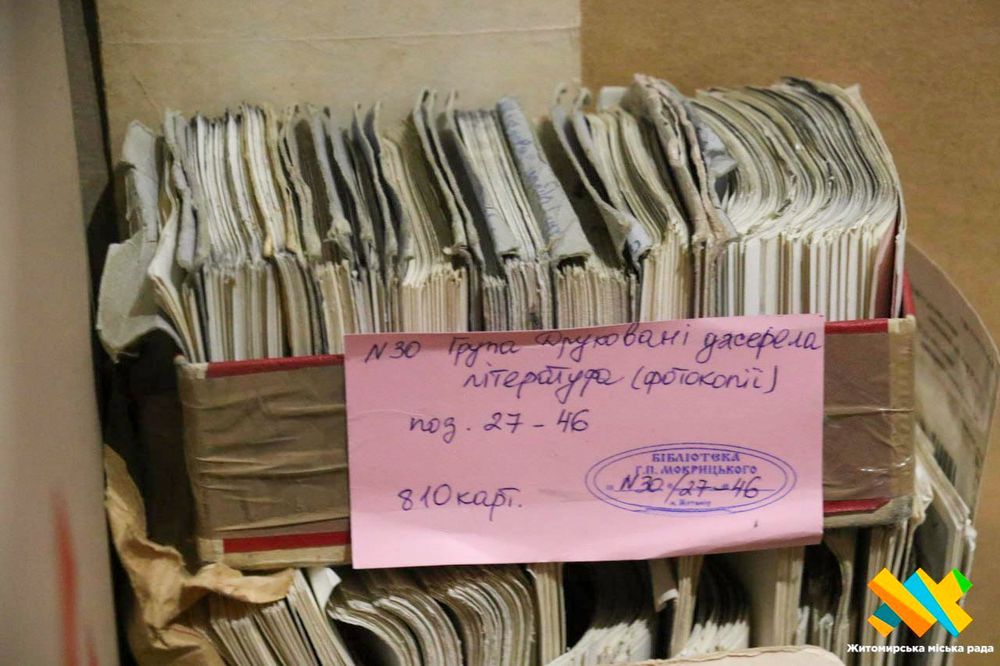 N30 Група Друковані джерела
література (фотокопії)
под. 27-46
810 карт.
БІБЛІОТЕКА
Г.П. МОКРИЦЬКОГО
N30/27-46
м. Житомир
Житомирська міська рада